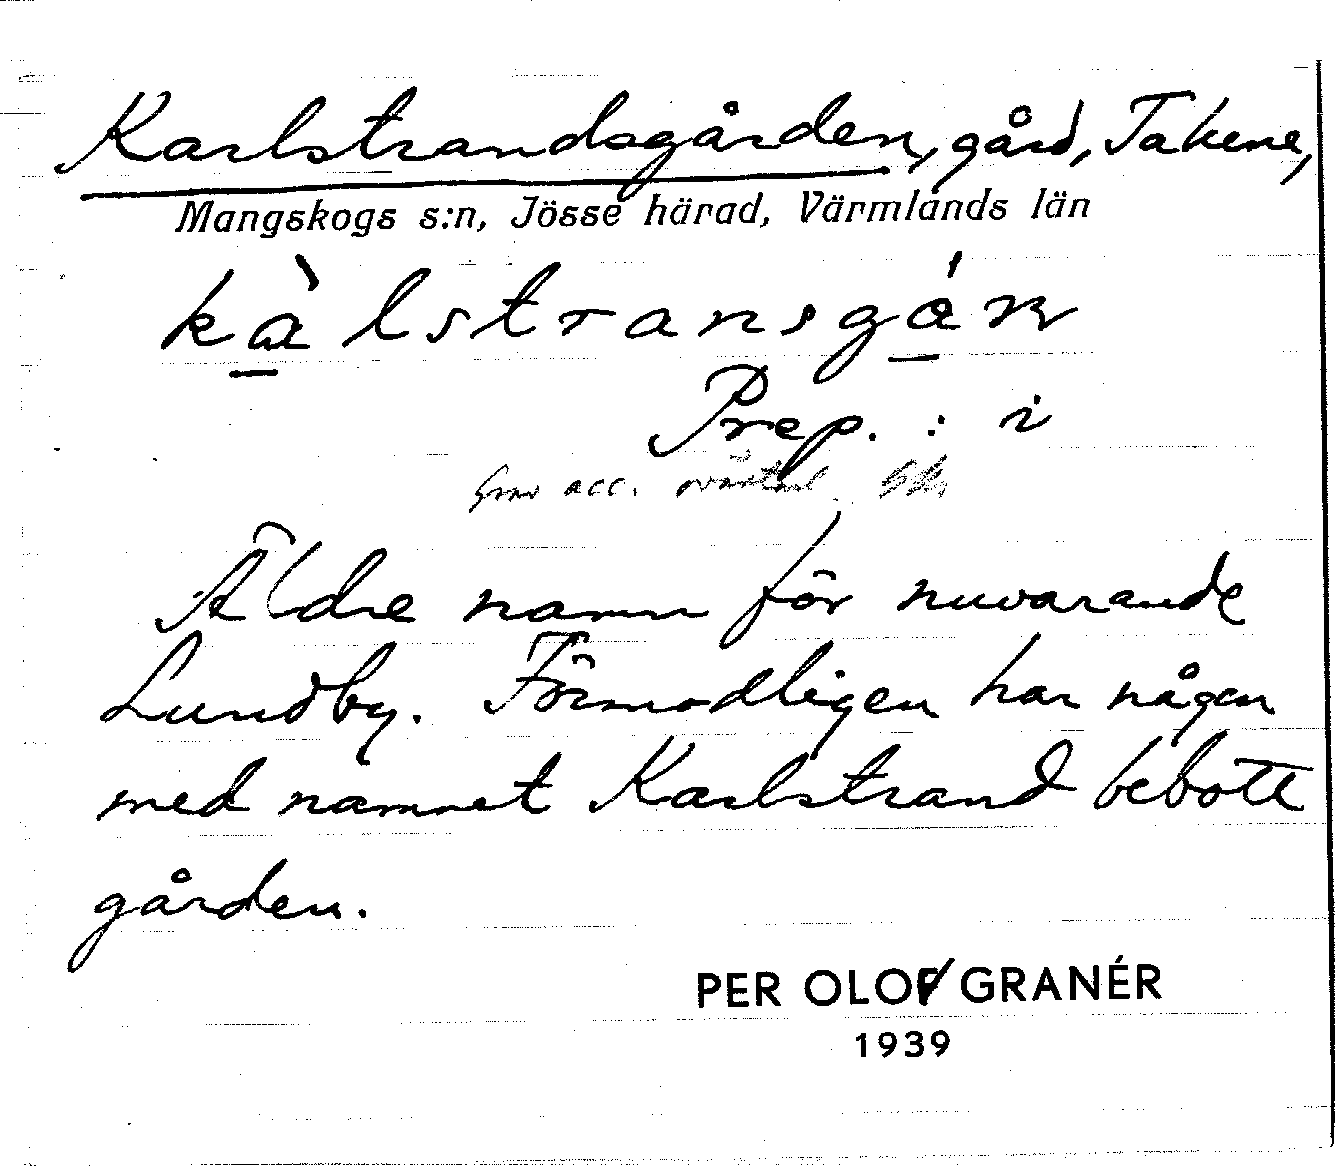 Karlstrandsgården, gård, Takene,
Mangskogs s:n, Jösse härad, Värmlands län
kàlstransgán
Prep. : i
acc.
Äldre namn för nuvarande
Lundby. Förmodligen har någon
med namnet Karlstrand bebott
gården.
PER OLOF GRANÉR
1939